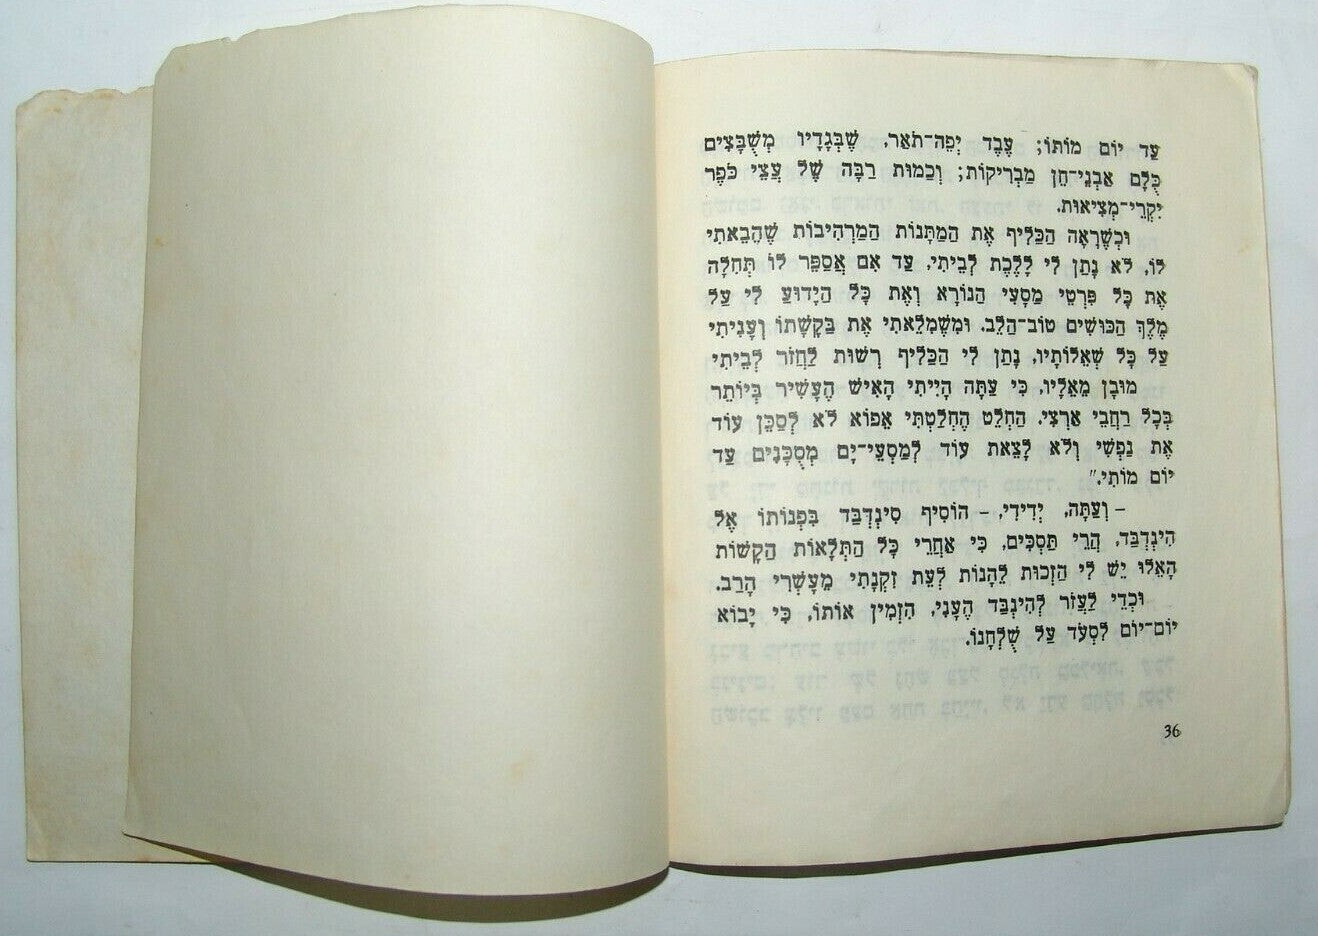 עַד יוֹם מוֹתוֹ; עֶבֶד יְפֵה־תֹאַר, שֶׁבְּגָדָיו מְשֻׁבָּצִים
כֻּלָּם אַבְנֵי־חֵן מַבְרִיקוֹת; וְכַמּוּת רַבָּה שֶׁל עֲצֵי כֹּפֶר
יִקְרֵי־מְצִיאוּת.
וּכְשֶׁרָאָה הַכַּלִּיף אֶת הַמַּתָּנוֹת הַמַּרְהִיבוֹת שֶׁהֵבֵאתִי
לוֹ, לֹא נָתַן לִי לָלֶכֶת לְבֵיתִי, עַד אִם אֲסַפֵּר לוֹ תְּחִלָּה
אֶת כָּל פִּרְטֵי מַסָּעִי הַנּוֹרָא וְאֶת כָּל הַיָּדוּעַ לִי עַל
מֶלֶךְ הַכּוּשִׁים טוֹב־הַלֵּב. וּמִשֶּׁמִּלֵּאתִי אֶת בַּקָּשָׁתוֹ וְעָנִיתִי
עַל כָּל שְׁאֵלוֹתָיו, נָתַן לִי הַכַּלִּיף רְשׁוּת לַחֲזֹר לְבֵיתִי
מוּבָן מֵאֵלָיו, כִּי עַתָּה הָיִיתִי הָאִישׁ הֶעָשִׁיר בְּיוֹתֵר
בְּכָל רַחֲבֵי אַרְצִי. הַחְלֵט הֶחְלַטְתִּי אֵפוֹא לֹא לְסַכֵּן עוֹד
אֶת נַפְשִׁי וְלֹא לָצֵאת עוֹד לְמַסְעֵי־יָם מְסֻכָּנִים עַד
יוֹם מוֹתִי."
– וְעַתָּה, יְדִידִי, – הוֹסִיף סִינְדְבַּד בִּפְנוֹתוֹ אֶל
הִינְדְבַּד, הֲרֵי תַּסְכִּים, כִּי אַחֲרֵי כָּל הַתְּלָאוֹת הַקָּשׁוֹת
הָאֵלּוּ יֵשׁ לִי הַזְּכוּת לֵהָנוֹת לְעֵת זִקְנָתִי מֵעָשְׁרִי הָרַב.
וּכְדֵי לַעֲזֹר לְהִינְבַּד הֶעָנִי, הִזְמִין אוֹתוֹ, כִּי יָבוֹא
יוֹם־יוֹם לִסְעֹד עַל שֻׁלְחָנוֹ.
36